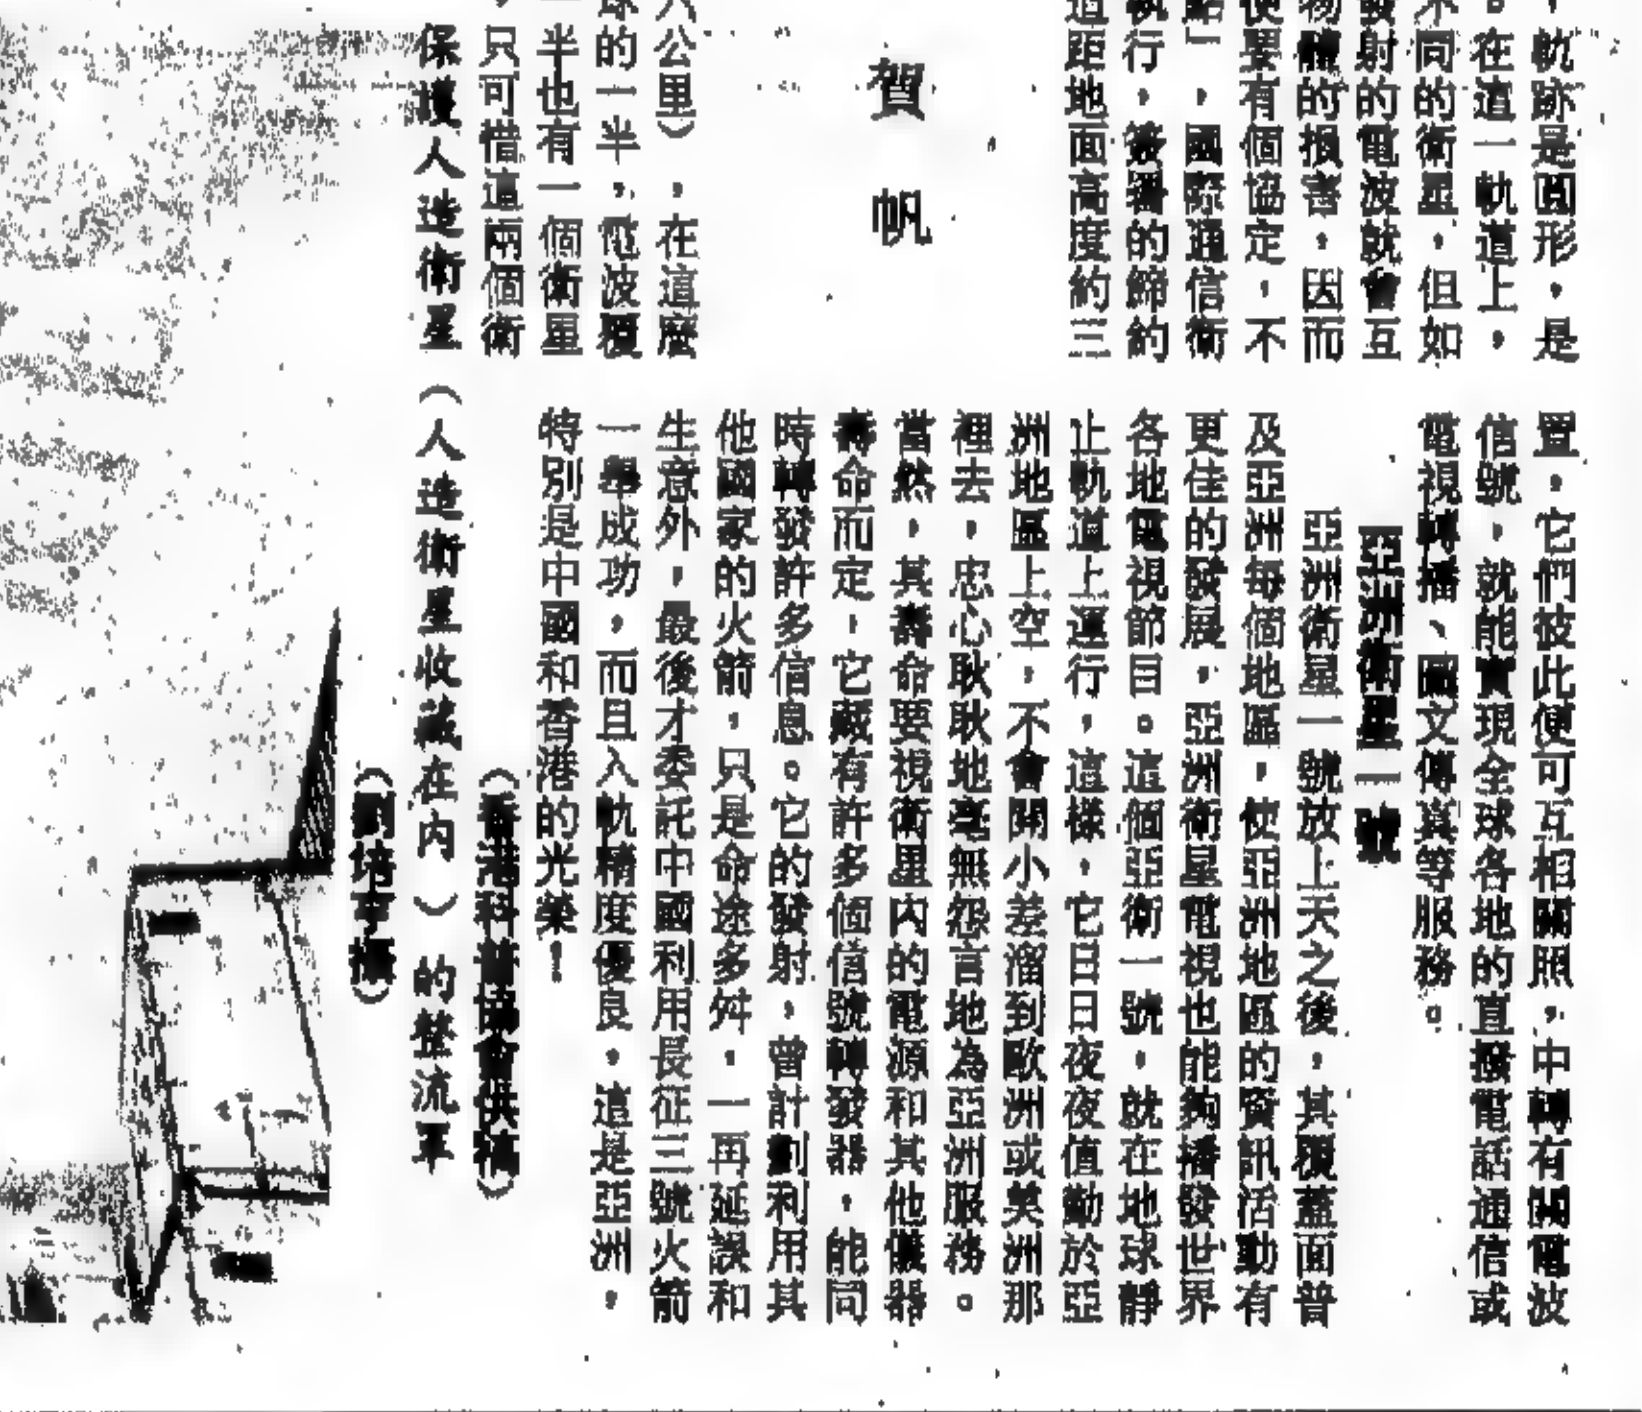 ，軌跡是圓形，是
。在這一軌道上，
不同的衛星，但如
發射的電波就會互
物體的損害，因而
便要有個協定，不
點」，國際通信衛
執行，簽署的締約
道距地面高度約三
賀帆
六公里），在這麼
球的一半，電波覆
一半也有一個衛星
，只可惜這兩個衛
置，它們彼此便可互相關照，中轉有關電波
信號，就能實現全球各地的直撥電話通信或
電視轉播、圖文傳真等服務。
亞洲衛星一號
亞洲衛星一號放上天之後，其覆蓋面普
及亞洲每個地區，使亞洲地區的資訊活動有
更佳的發展，亞洲衛星電視也能夠播發世界
各地電視節目。這個亞衛一號，就在地球靜
止軌道上運行，這樣，它日日夜夜值勤於亞
洲地區上空，不會開小差溜到歐洲或美洲那
裡去，忠心耿耿地毫無怨言地為亞洲服務。
當然，其壽命要視衛星內的電源和其他儀器
壽命而定，它藏有許多個信號轉發器，能同
時轉發許多信息。它的發射，曾計劃利用其
他國家的火箭，只是命途多舛，一再延誤和
生意外，最後才委託中國利用長征三號火箭
一舉成功，而且入軌精度優良，這是亞洲，
特別是中國和香港的光榮！
（香港科普協會供稿）
保護人造衛星（人造衛星收藏在內）的整流罩
（劉培亭攝）